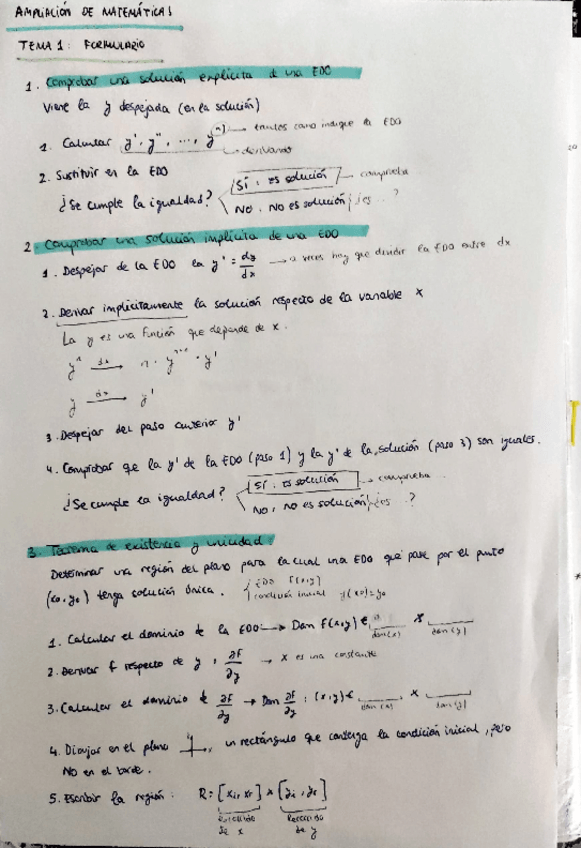 AMPLIACIÓN DE MATEMÁTICAS
TEMA 1: FORMULARIO
1. Comprobar una solución explícita de una EDO
Viene la y despejada (en la solución)
1. Calcular y', y'', ..., y^(n) → tantas como indique la EDO
→ derivando
2. Sustituir en la EDO
¿Se cumple la igualdad? Sí: es solución → comprueba
No. No es solución ¿es ..?
2. Comprobar una solución implícita de una EDO
1. Despejar de la EDO la y' = dy/dx → a veces hay que dividir la EDO entre dx
2. Derivar implícitamente la solución respecto de la variable x
La y es una función que depende de x.
y^n dx→ n · y^(n-1) · y'
y dx→ y'
3. Despejar del paso anterior y'
4. Comprobar que la y' de la EDO (paso 1) y la y' de la solución (paso 3) son iguales.
¿Se cumple la igualdad? Sí: es solución → comprueba
No, no es solución ¿es ..?
3. Teorema de existencia y unicidad:
Determinar una región del plano para la cual una EDO que pase por el punto
(x0, y0) tenga solución única. { EDO f(x,y)
condición inicial y(x0)=y0
1. Calcular el dominio de la EDO → Dom f(x,y) ∈ ___ x ___
dom(x) dom(y)
2. Derivar f respecto de y, ∂F/∂y → x es una constante
3. Calcular el dominio de ∂F/∂y → Dom ∂F/∂y : (x,y) ∈ ___ x ___
dom(x) dom(y)
4. Dibujar en el plano, un rectángulo que contenga la condición inicial, pero
NO en el borde.
5. Escribir la región: R = [xi, xf] x [yi, yf]
Recorrido de x Recorrido de y